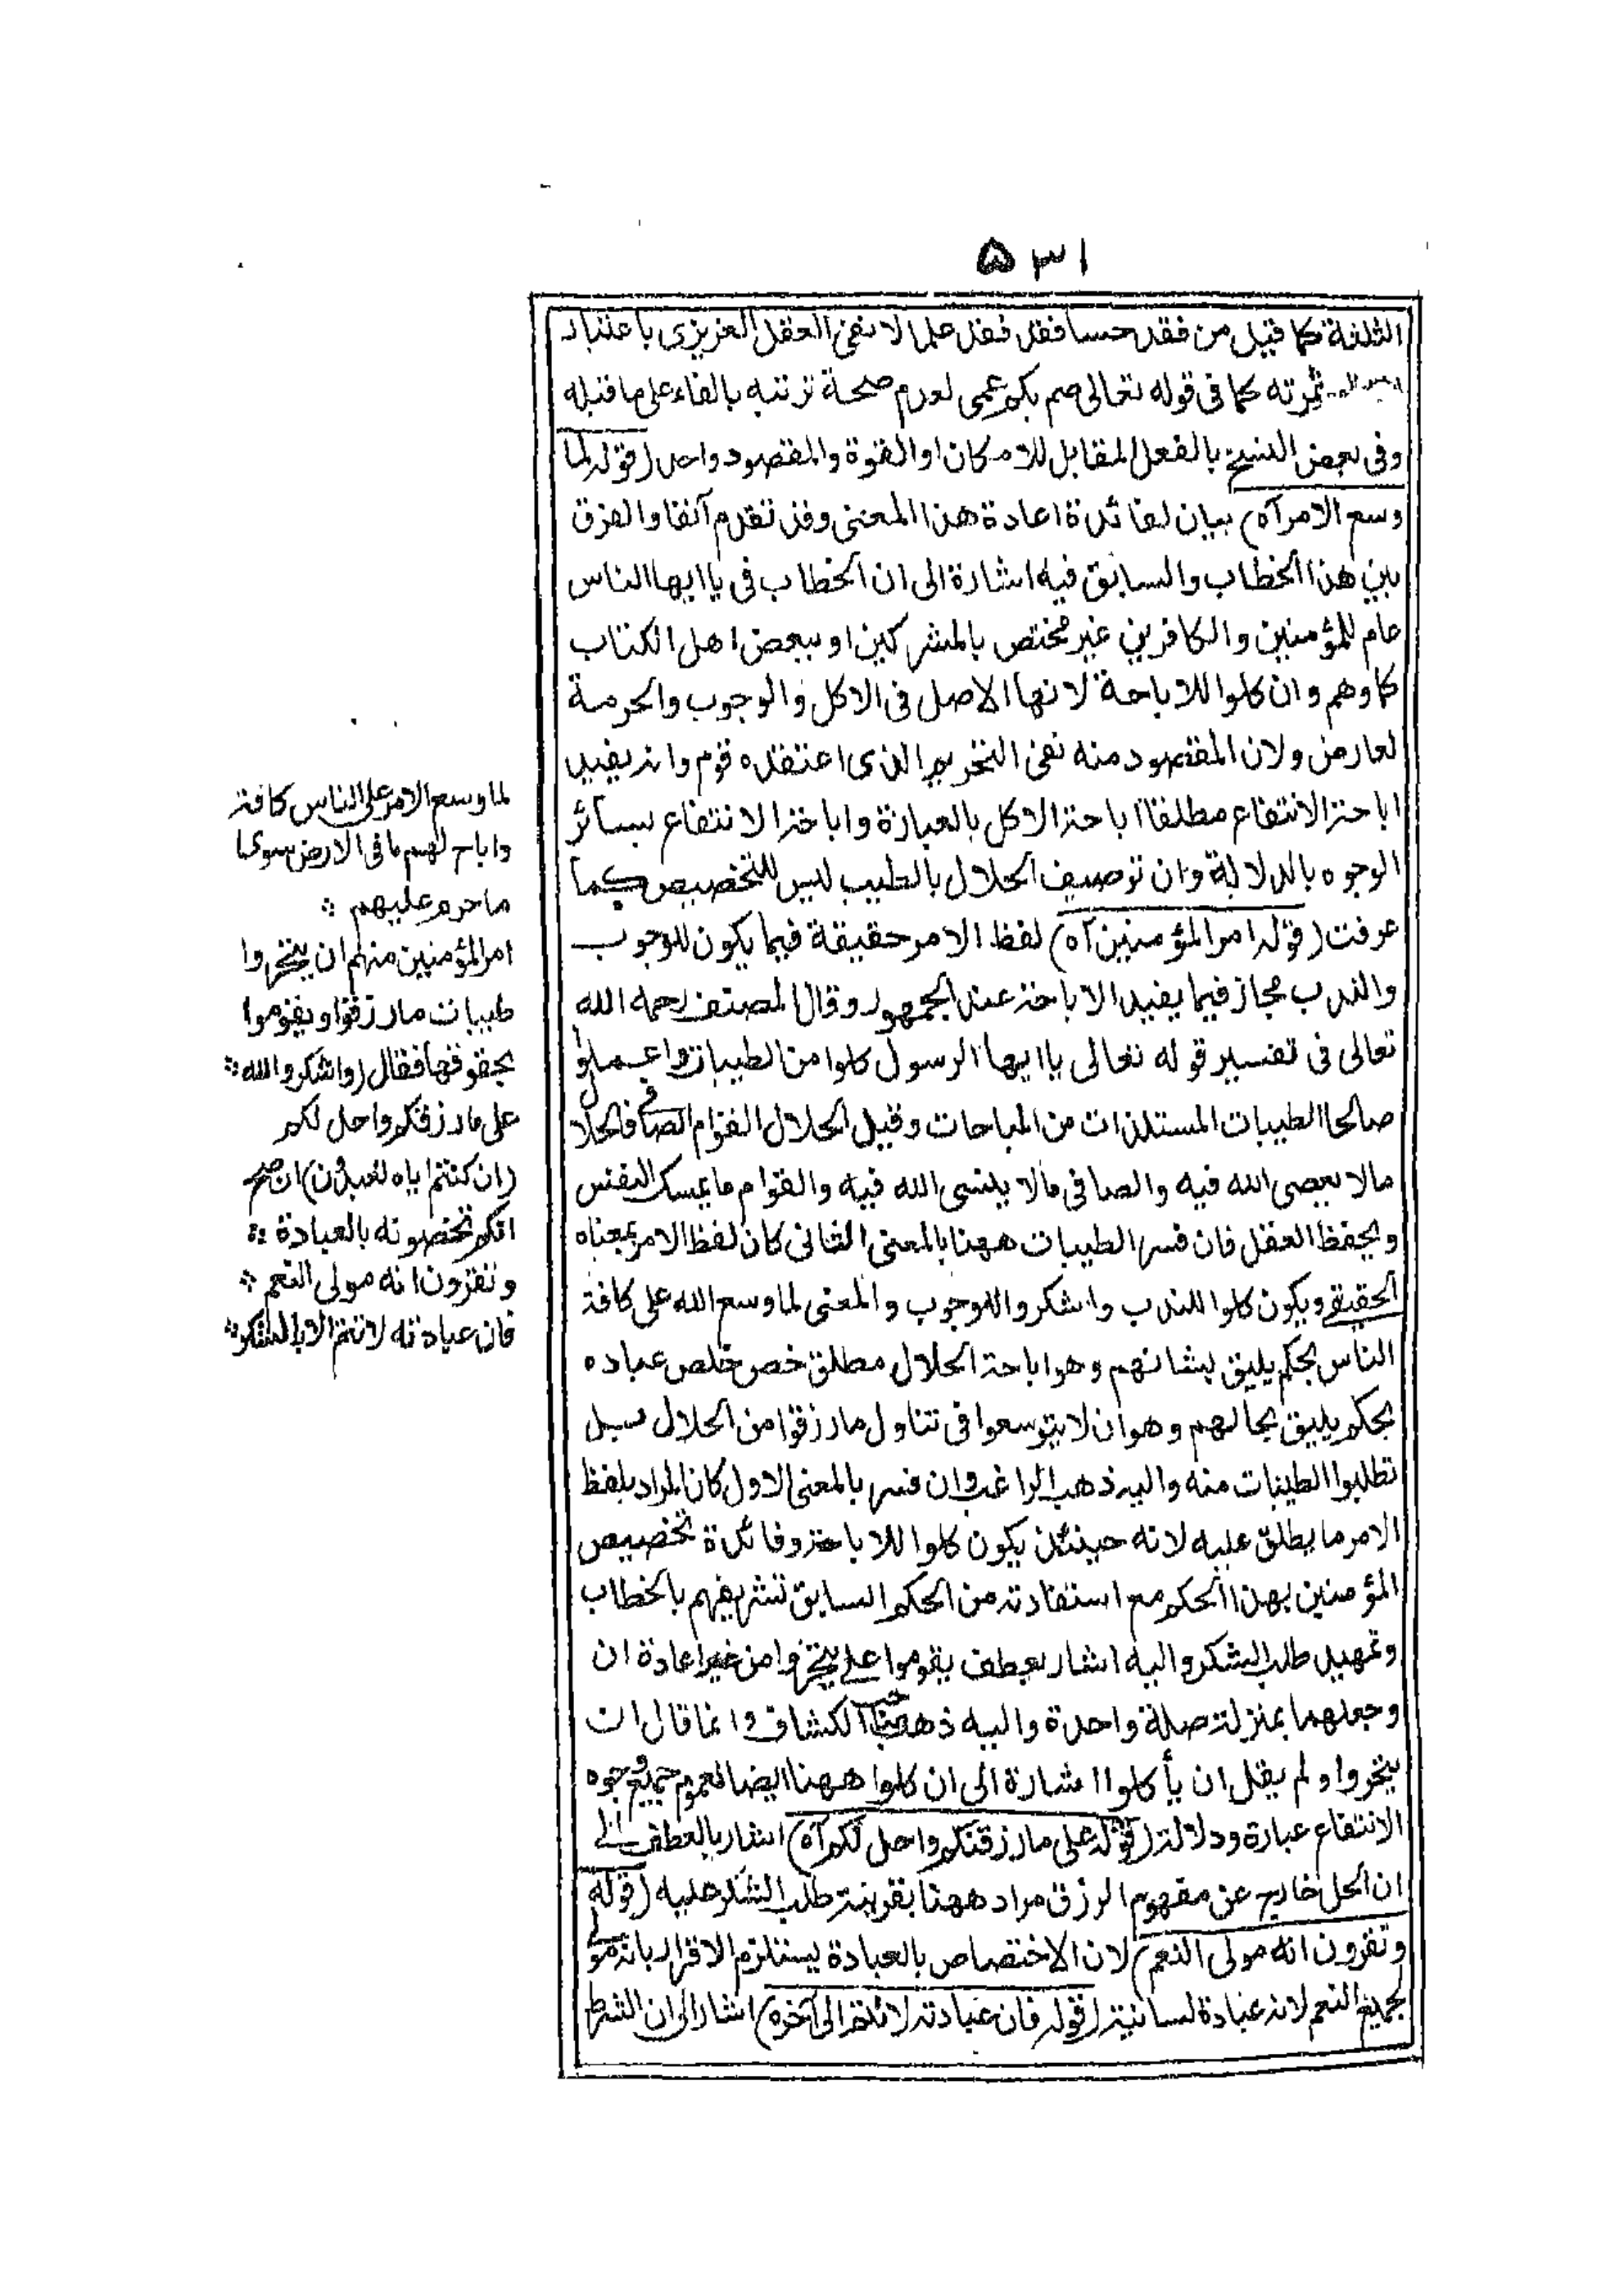 ۵۳۱
الثلثة كما قيل من فقد حسا فقد فقد علما لا نفى العقل الغريزى باعتبار
ثمرته كما فى قوله تعالى صم بكم عمى لعدم صحة ترتبه بالفاء على ما قبله
وفى بعض النسخ بالفعل المقابل للامكان او القوة والمقصود واحد (قوله لما
وسع الامر آه) بيان لفائدة اعادة هذا المعنى وقد تقدم آنفا والفرق
بين هذا الخطاب والسابق فيه اشارة الى ان الخطاب فى يا ايها الناس
عام للمؤمنين والكافرين غير مختص بالمشركين او ببعض اهل الكتاب
كما وهم وان كلوا للاباحة لانها الاصل فى الاكل والوجوب والحرمة
لعارض ولان المقصود منه نفى التحريم الذى اعتقده قوم وانه يفيد
اباحة الانتفاع مطلقا اباحة الاكل بالعبارة واباحة الانتفاع بسائر
الوجوه بالدلالة وان توصيف الحلال بالطيب ليس للتخصيص كما
عرفت (قوله امر المؤمنين آه) لفظ الامر حقيقة فيما يكون للوجوب
والندب مجاز فيما يفيد الاباحة عند الجمهور وقال المصنف رحمه الله
تعالى فى تفسير قوله تعالى يا ايها الرسول كلوا من الطيبات واعملوا
صالحا الطيبات المستلذات من المباحات وقيل الحلال القوام الصافى فالحلال
ما لا يعصى الله فيه والصافى ما لا ينسى الله فيه والقوام ما يمسك النفس
ويحفظ العقل فان فسر الطيبات ههنا بالمعنى الثانى كان لفظ الامر بمعناه
الحقيقى ويكون كلوا للندب واشكروا للوجوب والمعنى لما وسع الله على كافة
الناس بحكم يليق بشانهم وهو اباحة الحلال مطلق خص خلص عباده
بحكم يليق بحالهم وهو ان لا يتوسعوا فى تناول ما رزقوا من الحلال بل
تطلبوا الطيبات منه واليه ذهب الراغب وان فسر بالمعنى الاول كان المراد بلفظ
الامر ما يطلق عليه لانه حينئذ يكون كلوا للاباحة وفائدة تخصيص
المؤمنين بهذا الحكم مع استفادته من الحكم السابق تشريفهم بالخطاب
وتمهيد طلب الشكر واليه اشار بعطف يقوموا على يتحروا من غير اعادة ان
وجعلهما بمنزلة صلة واحدة واليه ذهب صاحب الكشاف وانما قال ان
يتحروا ولم يقل ان يأكلوا اشارة الى ان كلوا ههنا ايضا لعموم جميع وجوه
الانتفاع عبارة ودلالة (قوله على ما رزقنكم واحل لكم آه) اشار بالعطف الى
ان الحل خارج عن مفهوم الرزق مراد ههنا بقرينة طلب الشكر عليه (قوله
وتقرون انه مولى النعم) لان الاختصاص بالعبادة يستلزم الاقرار بانه مولى
لجميع النعم لانه عبادة لسانية (قوله فان عبادته لا تتم الى آخره) اشار الى ان الشرط
لما وسع الامر على الناس كافة
واباح لهم ما فى الارض سوى
ما حرم عليهم ⁘
امر المؤمنين منهم ان يتحروا
طيبات ما رزقوا ويقوموا
بحقوقها فقال (واشكروا لله ⁘
على ما رزقكم واحل لكم
(ان كنتم اياه تعبدون) ان صح
انكم تخصونه بالعبادة ⁘
وتقرون انه مولى النعم ⁘
فان عبادته لا تتم الا بالشكر ⁘